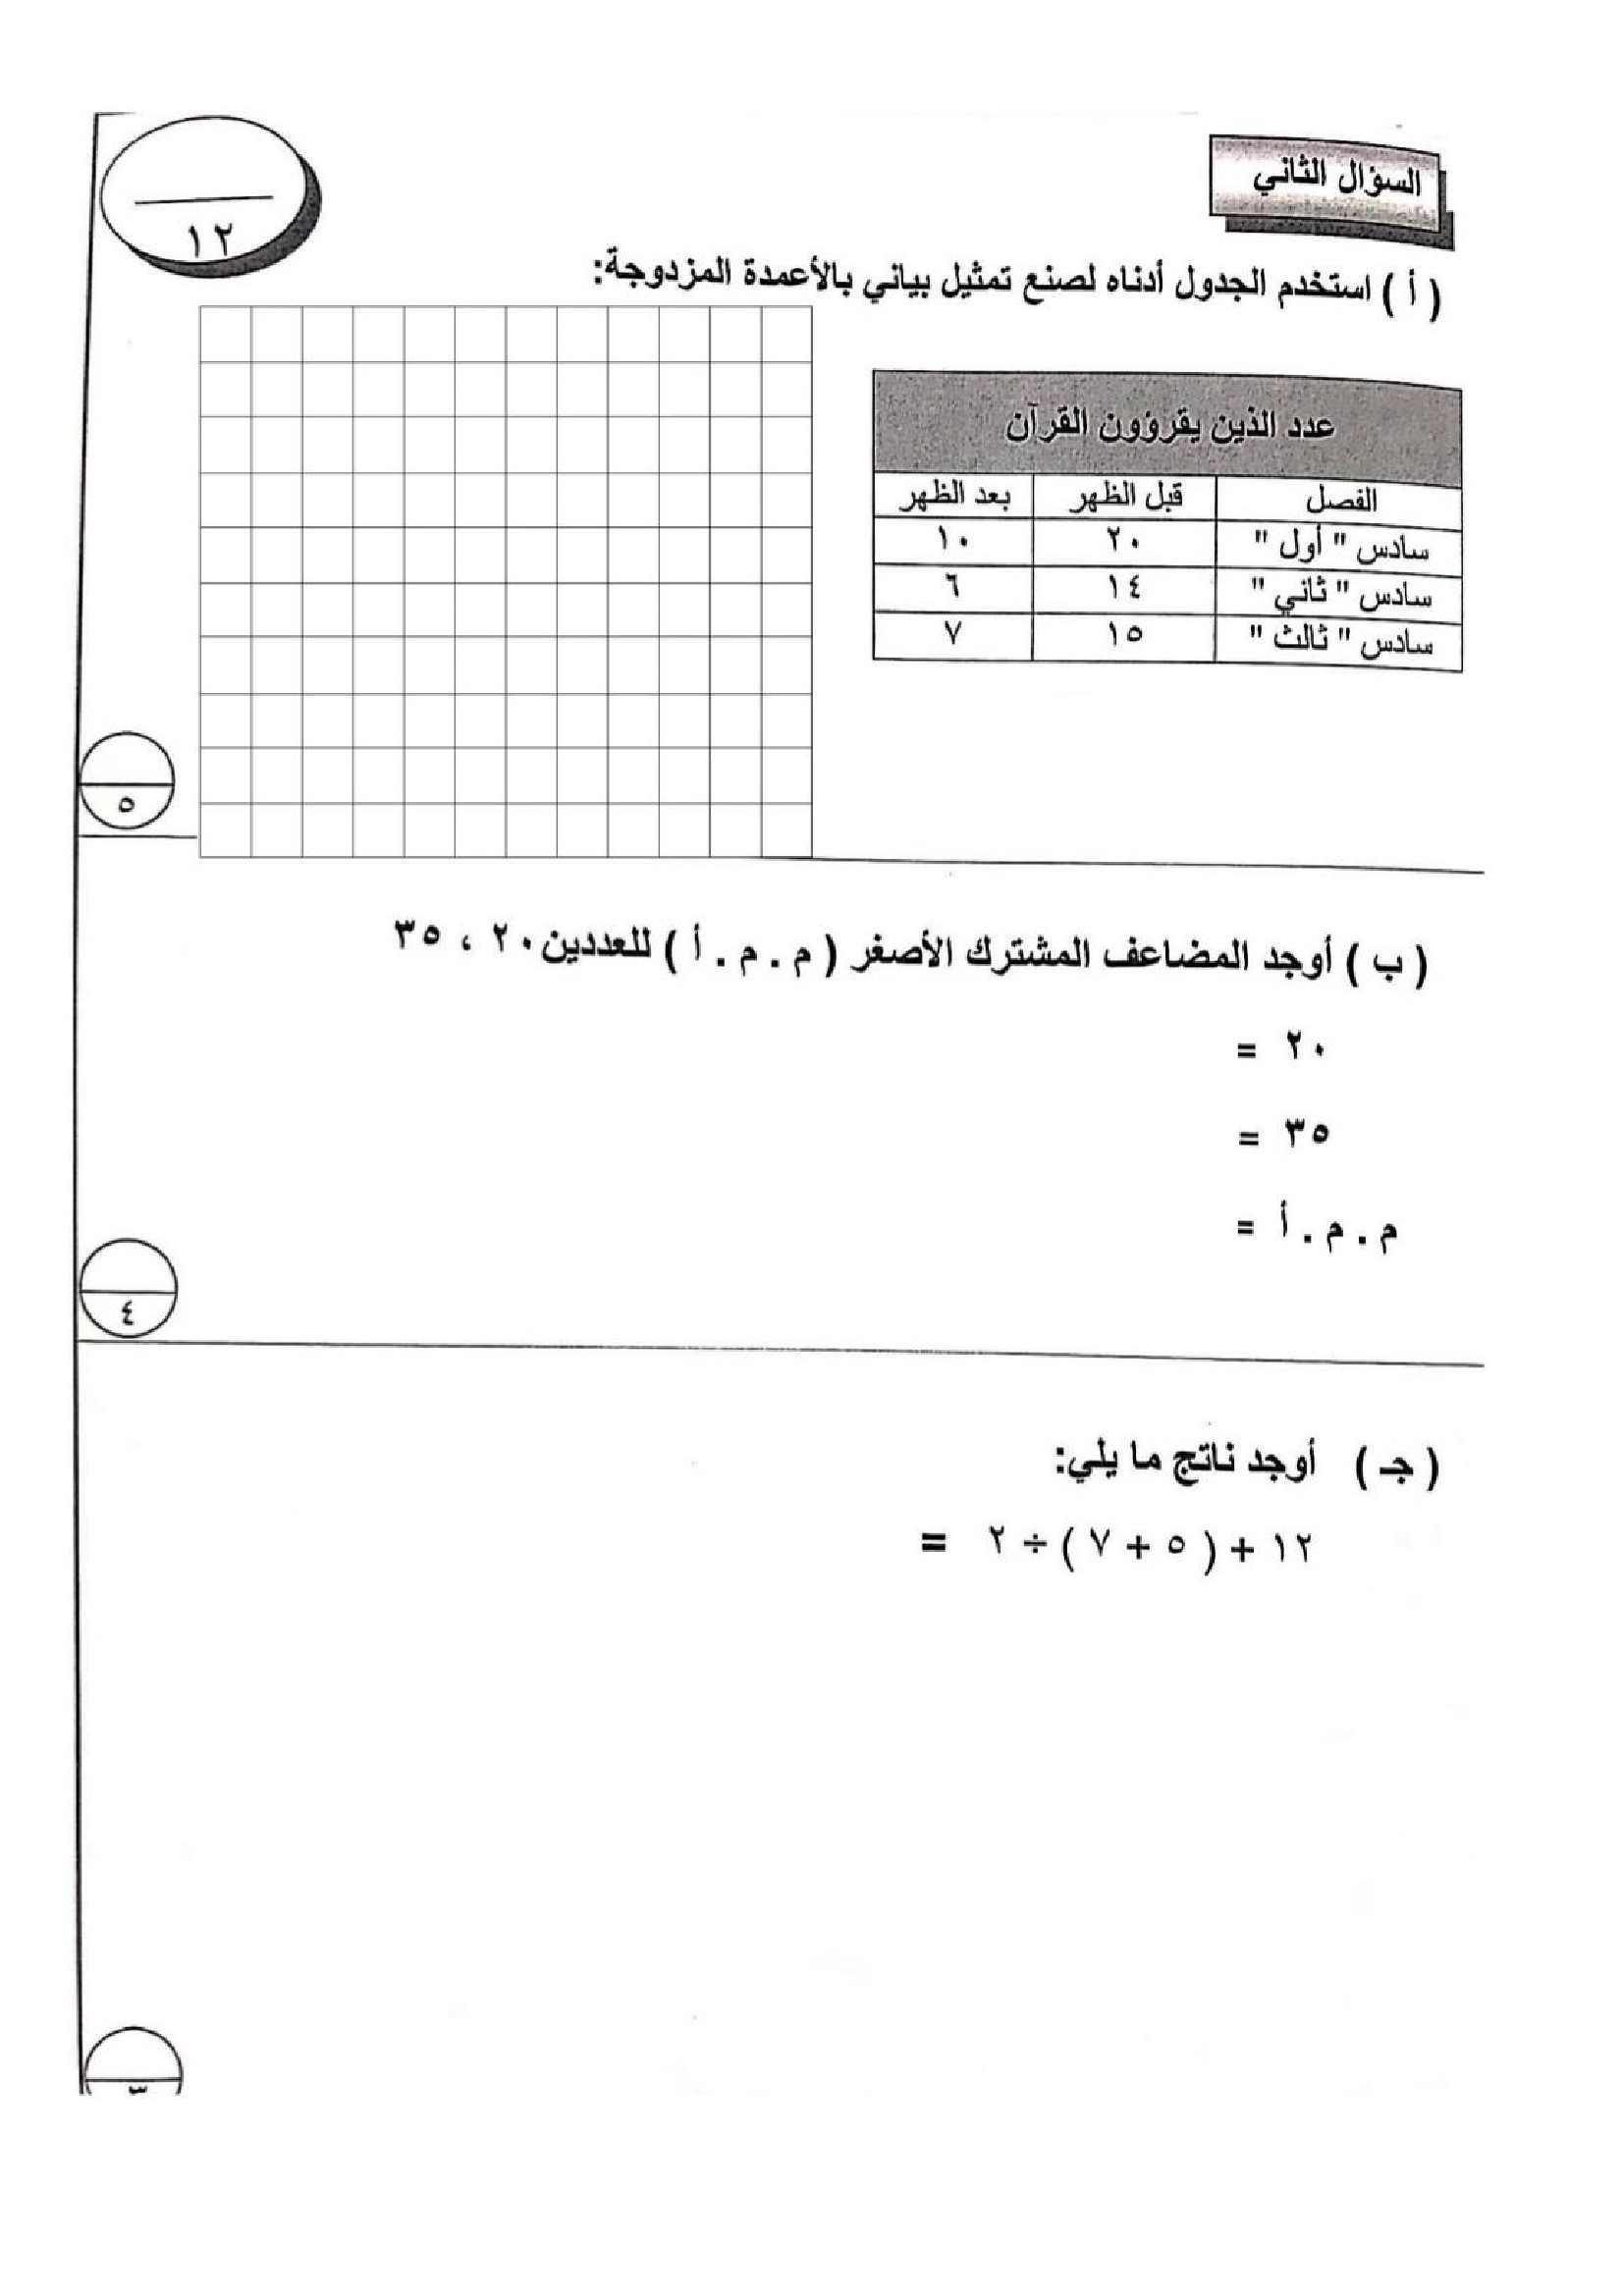 السؤال الثاني
١٢
( أ ) استخدم الجدول أدناه لصنع تمثيل بياني بالأعمدة المزدوجة:
عدد الذين يقرؤون القرآن
الفصل قبل الظهر بعد الظهر
سادس " أول " ٢٠ ١٠
سادس " ثاني " ١٤ ٦
سادس " ثالث " ١٥ ٧
٥
( ب ) أوجد المضاعف المشترك الأصغر ( م . م . أ ) للعددين ٢٠ ، ٣٥
٢٠ =
٣٥ =
م . م . أ =
٤
( جـ ) أوجد ناتج ما يلي:
١٢ + ( ٥ + ٧ ) ÷ ٢ =